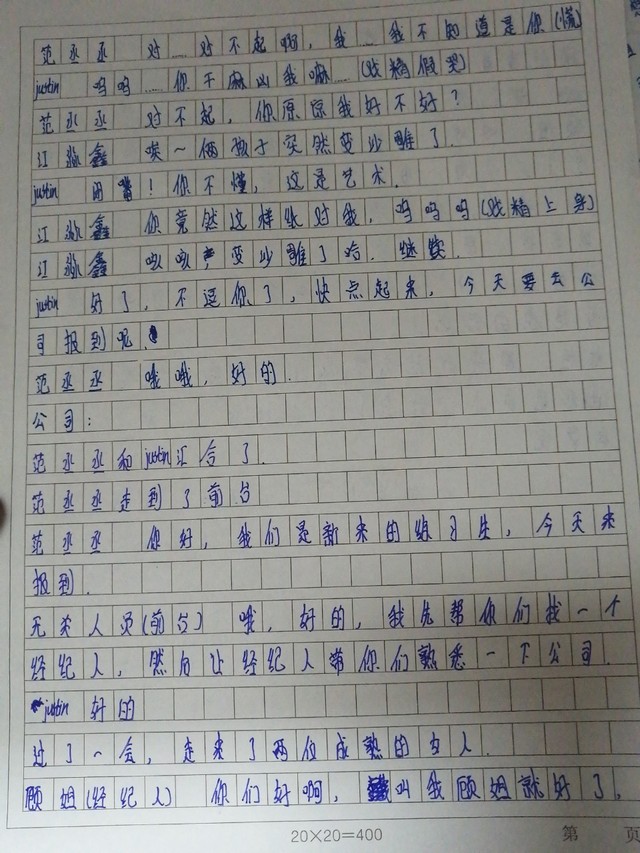 范丞丞 对……对不起啊,我……我不知道是你(慌)
justin 呜呜……你干嘛凶我嘛……(戏精假哭)
范丞丞 对不起,你原谅我好不好?
江淼鑫 唉~俩孩子突然变沙雕了.
justin 闭嘴!你不懂,这是艺术.
江淼鑫 你竟然这样纸对我,呜呜呜(戏精上身)
江淼鑫 咳咳 变沙雕了哈.继续.
justin 好了,不逗你了,快点起来,今天要去公
司报到呢.
范丞丞 哦哦,好的.
公司:
范丞丞和justin汇合了.
范丞丞走到了前台
范丞丞 你好,我们是新来的练习生,今天来
报到.
无关人员(前台) 哦,好的,我先帮你们找一个
经纪人,然后让经纪人带你们熟悉一下公司.
justin 好的
过了一会,走来了两位成熟的女人.
顾姐(经纪人) 你们好啊,叫我顾姐就好了.
20×20=400
第 页